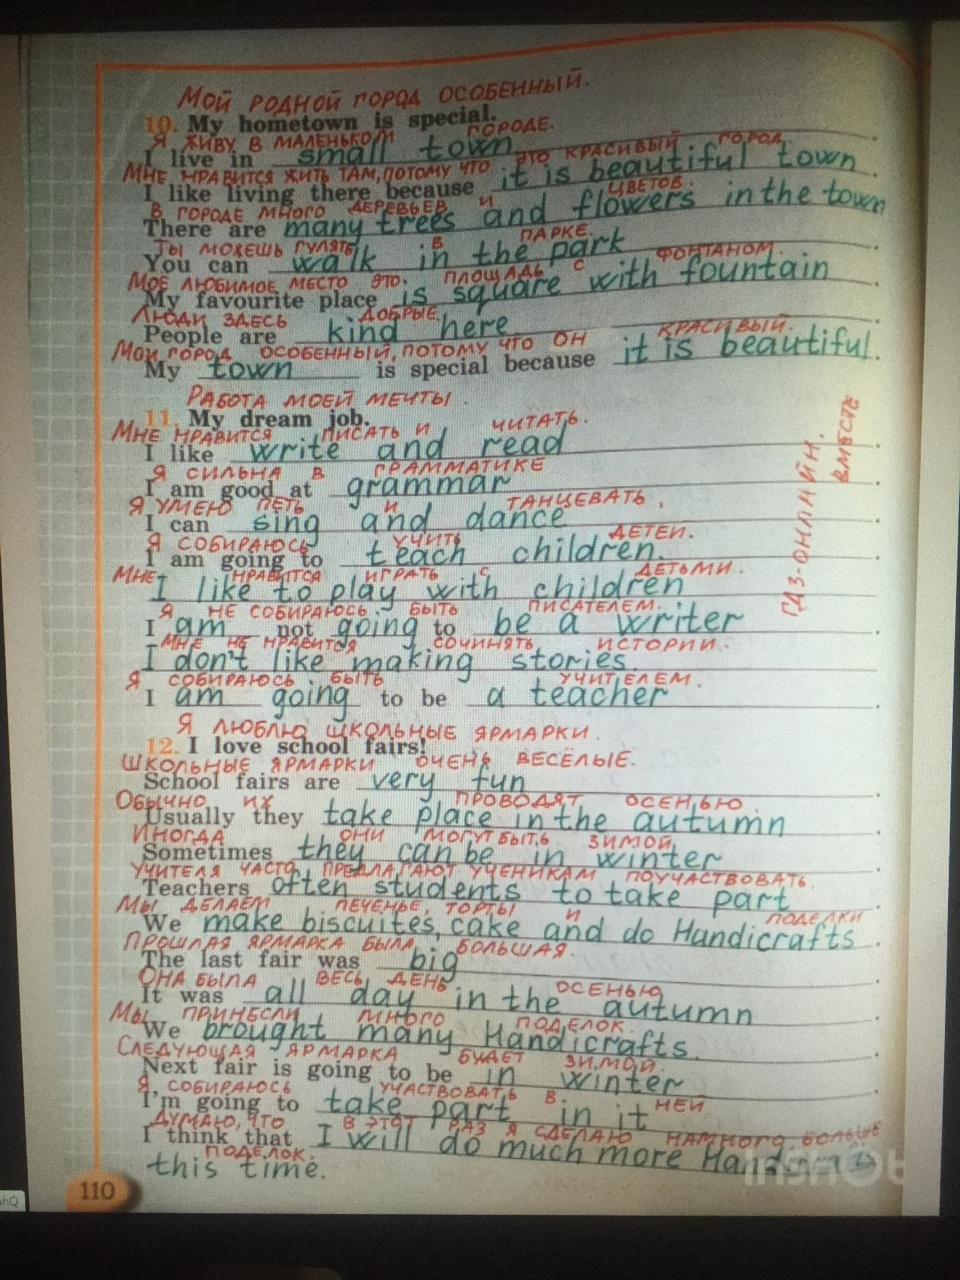 Мой родной город особенный.
10. My hometown is special.
Я живу в маленьком городе.
I live in small town.
Мне нравится жить там, потому что это красивый город
I like living there because it is beautiful town
В городе много деревьев и цветов.
There are many trees and flowers in the town
Ты можешь гулять в парке.
You can walk in the park.
Моё любимое место это площадь с фонтаном.
My favourite place is square with fountain
Люди здесь добрые.
People are kind here.
Мой город особенный, потому что он красивый.
My town is special because it is beautiful.
Работа моей мечты.
11. My dream job.
Мне нравится писать и читать.
I like write and read.
Я сильна в грамматике
I am good at grammar.
Я умею петь и танцевать.
I can sing and dance.
Я собираюсь учить детей.
I am going to teach children.
Мне нравится играть с детьми.
I like to play with children.
Я не собираюсь быть писателем.
I am not going to be a writer.
Мне не нравится сочинять истории.
I don't like making stories.
Я собираюсь быть учителем.
I am going to be a teacher.
ГДЗ-онлайн.
вместе
Я люблю школьные ярмарки.
12. I love school fairs!
Школьные ярмарки очень весёлые.
School fairs are very fun.
Обычно их проводят осенью.
Usually they take place in the autumn.
Иногда они могут быть зимой
Sometimes they can be in winter.
Учителя часто предлагают ученикам поучаствовать.
Teachers often students to take part.
Мы делаем печенье, торты и поделки
We make biscuites, cake and do Handicrafts.
Прошлая ярмарка была большая.
The last fair was big.
Она была весь день осенью
It was all day in the autumn.
Мы принесли много поделок.
We brought many Handicrafts.
Следующая ярмарка будет зимой.
Next fair is going to be in winter.
Я собираюсь участвовать в ней
I'm going to take part in it.
Думаю, что в этот раз я сделаю намного больше
I think that I will do much more
поделок.
this time.
110